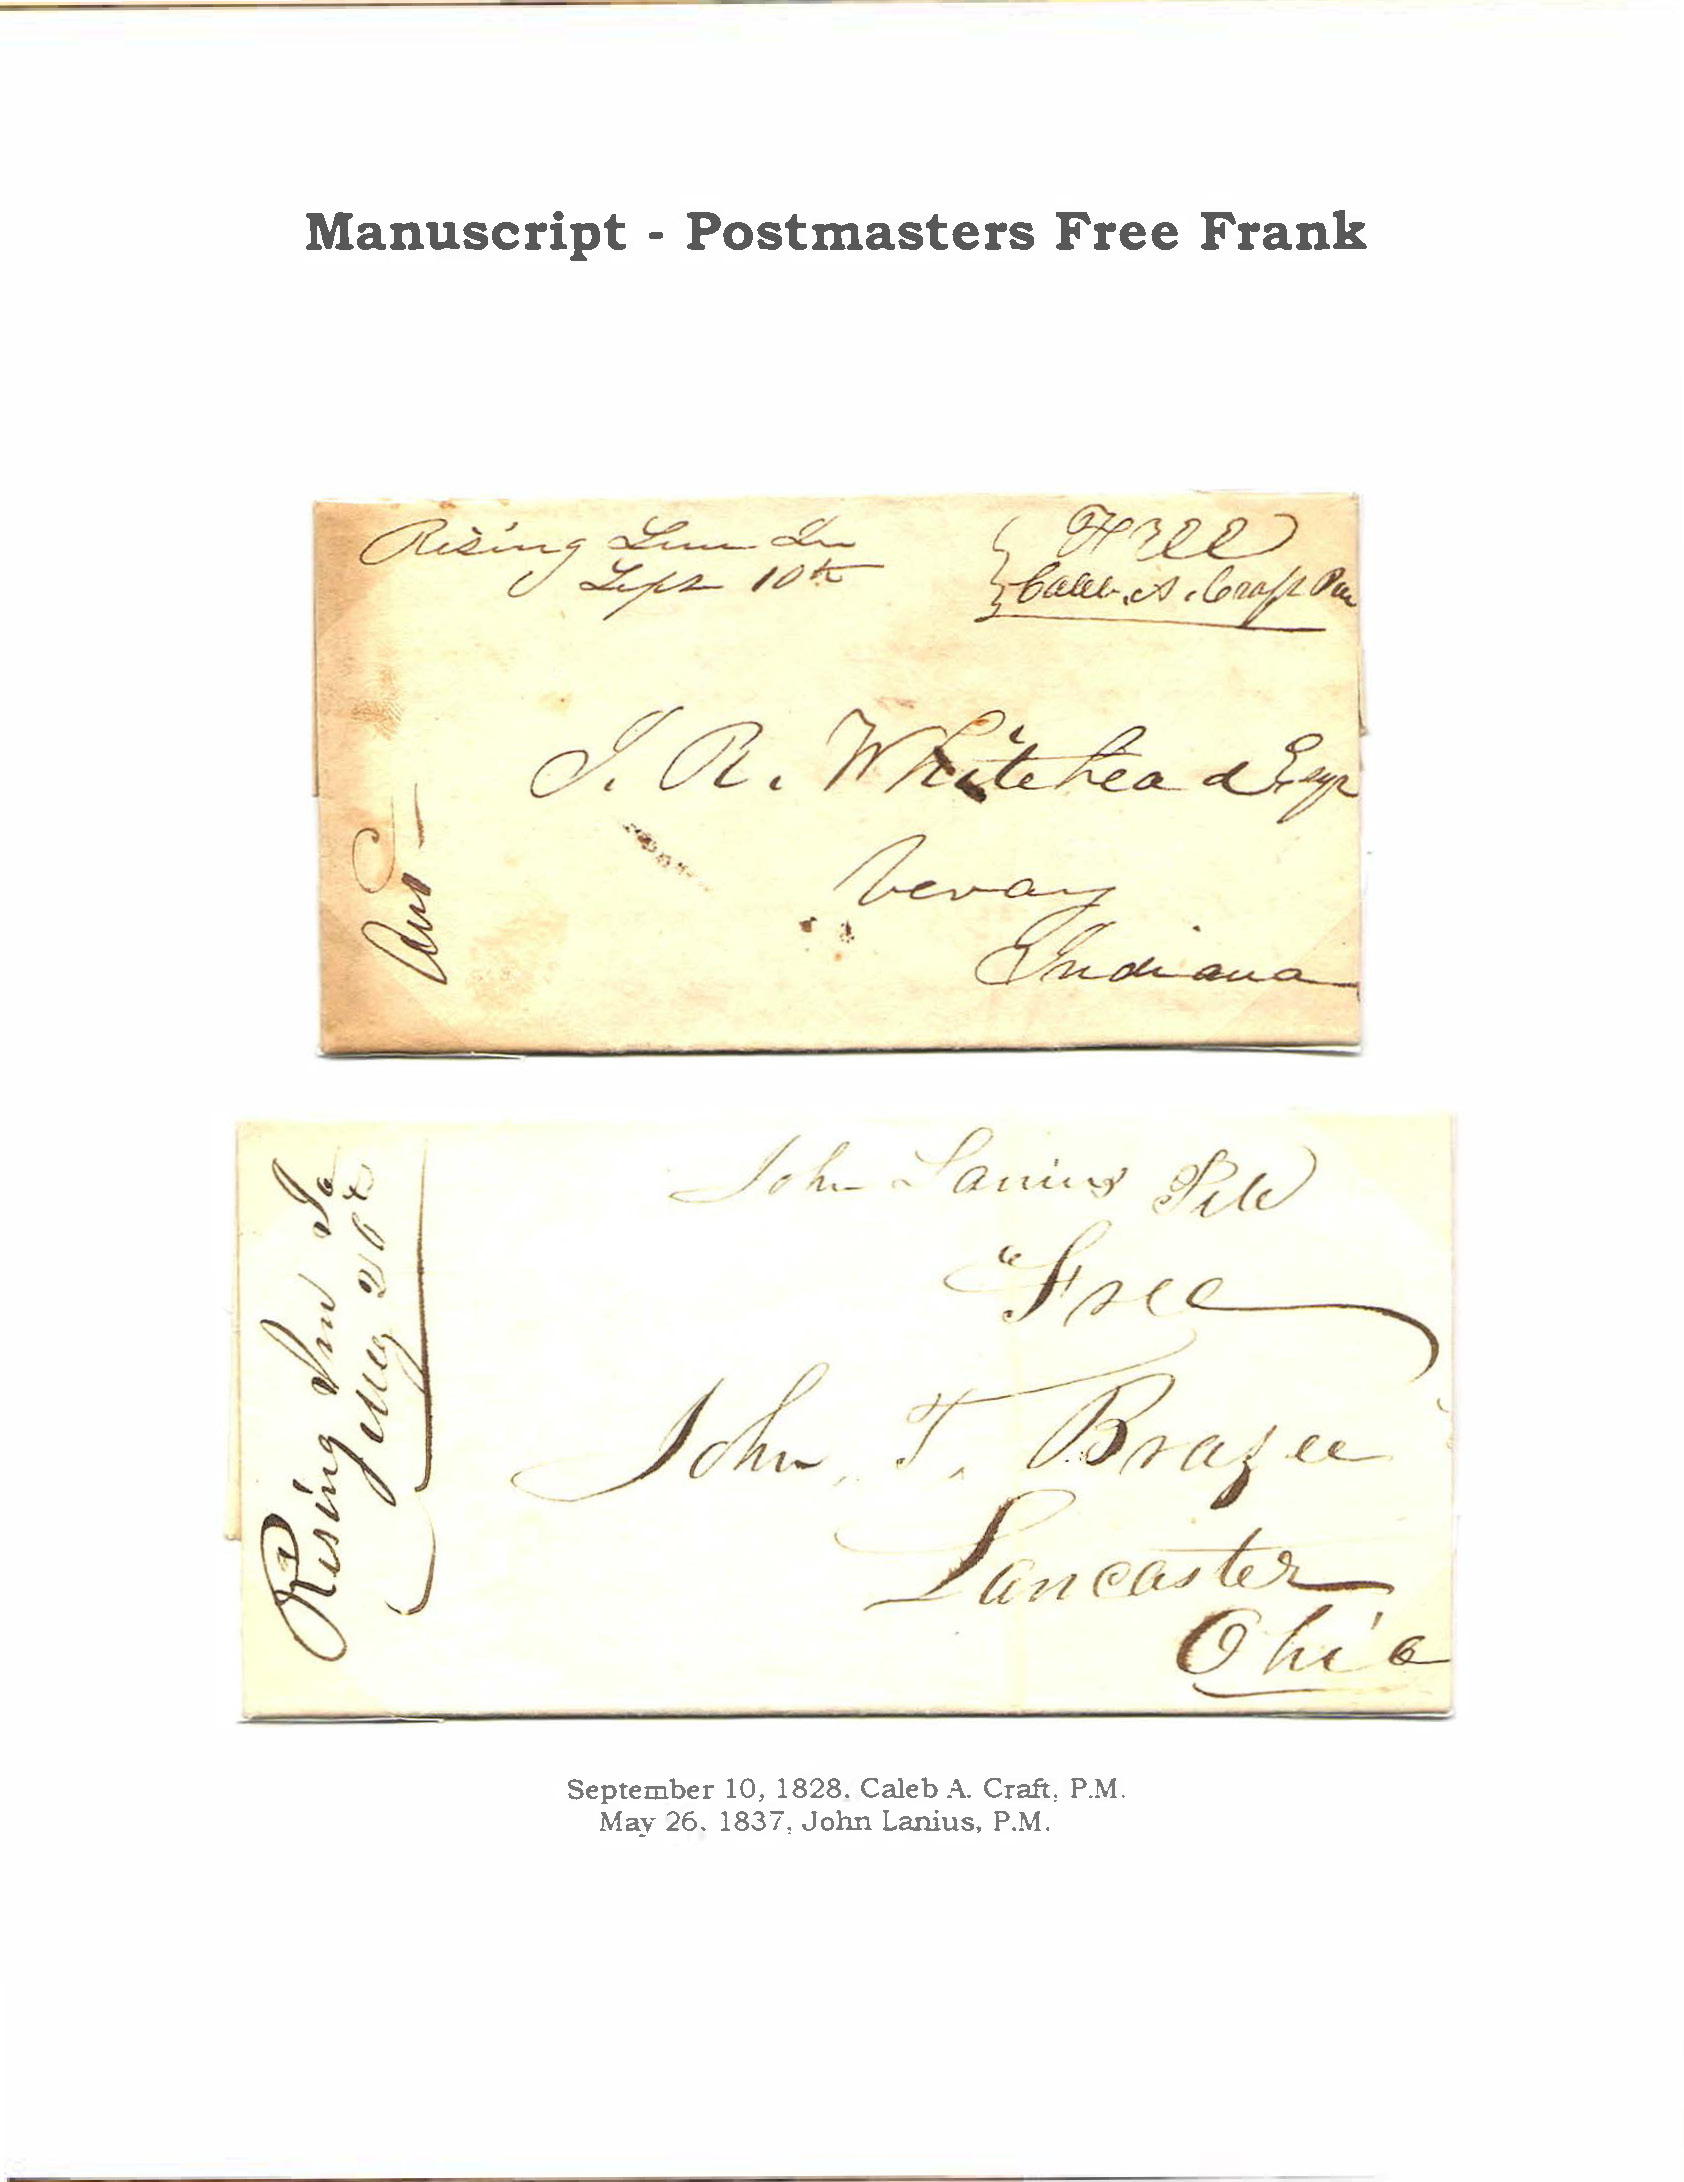 Manuscript - Postmasters Free Frank
Rising Sun In
Sept 10th
Free
Caleb. A. Craft Pm
J. R. Whitehead Esqr
Vevay
Indiana
Rising Sun Ia
May 26
John Lanius PM
Free
John T. Brazee
Lancaster
Ohio
September 10, 1828. Caleb A. Craft, P.M.
May 26. 1837, John Lanius, P.M.